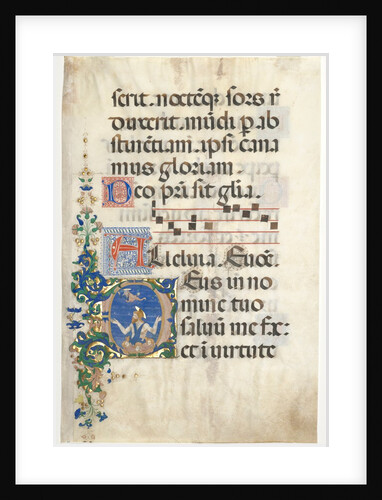 serit. noctēq₃ sors ir̄
duxerit. mūdi p̱ ab
stinentiam. ipsi cana
mus gloriam.
Deo pr̄i sit glīa.
Alleluia. Euoue.
Deus in no
mine tuo
saluū me fac:
et ī uirtute